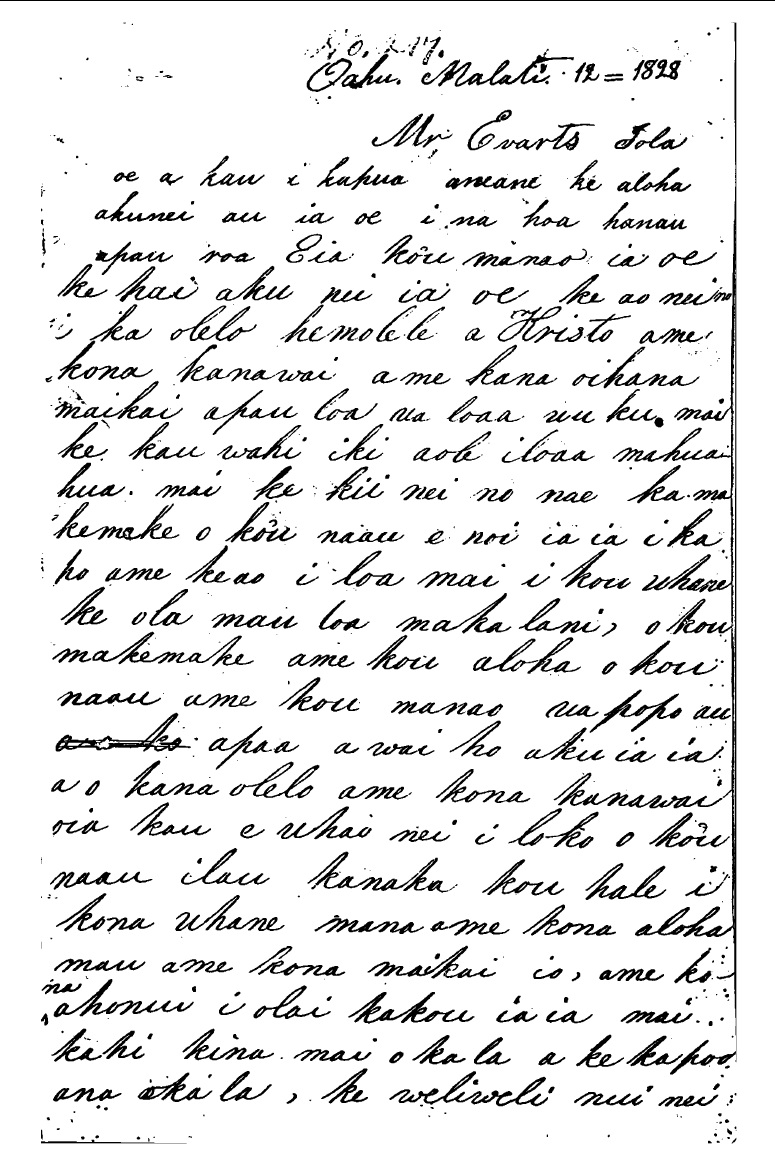 Oahu. Malati. 12 = 1828
Mr, Evarts Iola
oe a kau i kapua aneane ke aloha
akunei au ia oe i na hoa hanau
apau roa Eia kôu manao ia oe
ke hai aku nei ia oe ke ao nei no
i ka olelo hemolele a Kristo ame
kona kanawai ame kana oihana
maikai apau loa ua loaa uuku. mai
ke kau wahi iki aole iloaa mahua
hua. mai ke kii nei no nae ka ma
kemake o kôu naau e noi ia ia i ka
po ame keao i loa mai i kou uhane
ke ola mau loa maka lani, o kou
makemake ame kou aloha o kou
naau ame kou manao ua popo au
apaa a wai ho aku ia ia
a o kana olelo ame kona kanawai
oia kau e uhai nei i loko o kôu
naau ilau kanaka kou hale i
kona uhane mana ame kona aloha
mau ame kona maikai io, ame ko-
na ahonui i olai kakou ia ia mai
kahi kina mai o ka la a ke kapoo
ana oka la, ke weliweli nui nei